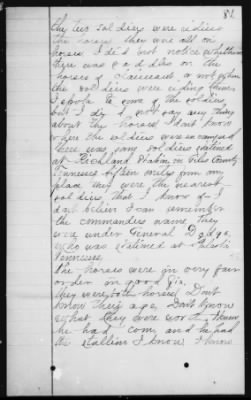 82
the two soldiers were riding
the horses they were all on
horses I did not notice whether
there was saddles on the
horses of Claimant or not when
the soldiers were riding them
I spoke to some of the soldiers
but I did not say any thing
about the horses I dont know
where the soldiers were encamped
there was some soldiers stationed
at Richland Station in Giles County
Tennessee fifteen miles from my
place they were the nearest
soldiers that I know of I
dont believe I can remember
the commanders name, they
were under General Dodge
who was stationed at Pulaski
Tennessee
The horses were in very fair
order in good fix,
they were both horses Dont
know their age, Dont know
what they were worth, I knew
he had corn and he had
the Stallion I know I know